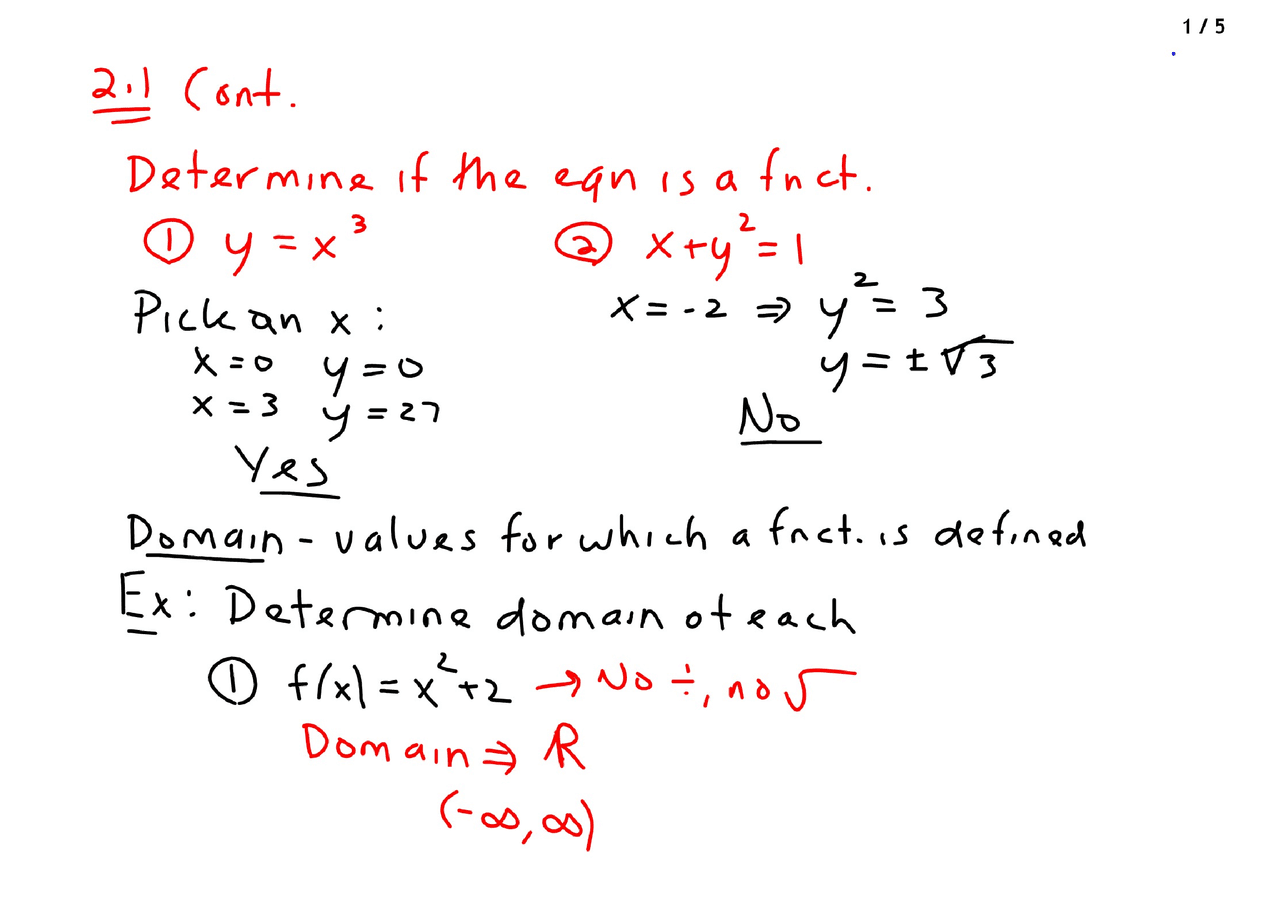 1 / 5
2.1 Cont.
Determine if the eqn is a fnct.
① y = x³ ② x+y² = 1
Pick an x : x = -2 ⇒ y² = 3
x = 0 y = 0 y = ±√3
x = 3 y = 27 No
Yes
Domain - values for which a fnct. is defined
Ex: Determine domain of each
① f(x) = x²+2 → No ÷, no √
Domain ⇒ ℝ
(-∞, ∞)